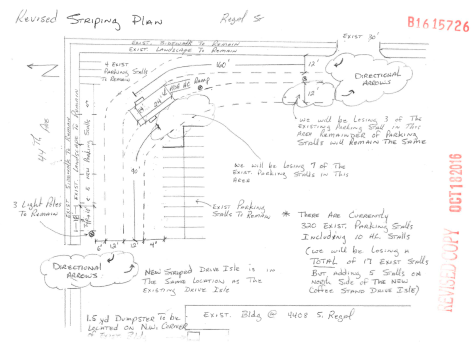 Revised Striping Plan
Regal St
B1615726
EXIST 30'
EXIST. SIDEWALK TO REMAIN
EXIST. LANDSCAPE TO REMAIN
160'
12'
12'
4 EXIST
PARKING STALLS
TO REMAIN
AC RAMP
DIRECTIONAL
ARROWS
44th Ave
EXIST SIDEWALK TO REMAIN
EXIST LANDSCAPE TO REMAIN
new Parking Stalls
24
90
WE WILL BE LOSING 3 OF THE
EXISTING PARKING STALL IN THIS
AREA REMAINDER OF PARKING
STALLS WILL REMAIN THE SAME
WE WILL BE LOSING 7 OF THE
EXIST. PARKING STALLS IN THIS
AREA
3 LIGHT POLES
TO REMAIN
EXIST PARKING
STALLS TO REMAIN
6' 12' 12' 4'
* THERE ARE CURRENTLY
320 EXIST. PARKING STALLS
INCLUDING 10 HC STALLS
(WE WILL BE LOSING A
TOTAL OF 17 EXIST STALLS
BUT ADDING 5 STALLS ON
NORTH SIDE OF THE NEW
COFFEE STAND DRIVE ISLE)
REVISED COPY OCT 18 2016
DIRECTIONAL
ARROWS
NEW STRIPED DRIVE ISLE IS IN
THE SAME LOCATION AS THE
EXISTING DRIVE ISLE
1.5 yd DUMPSTER TO BE
LOCATED ON N.W. CORNER
EXIST. Bldg @ 4408 S. Regal